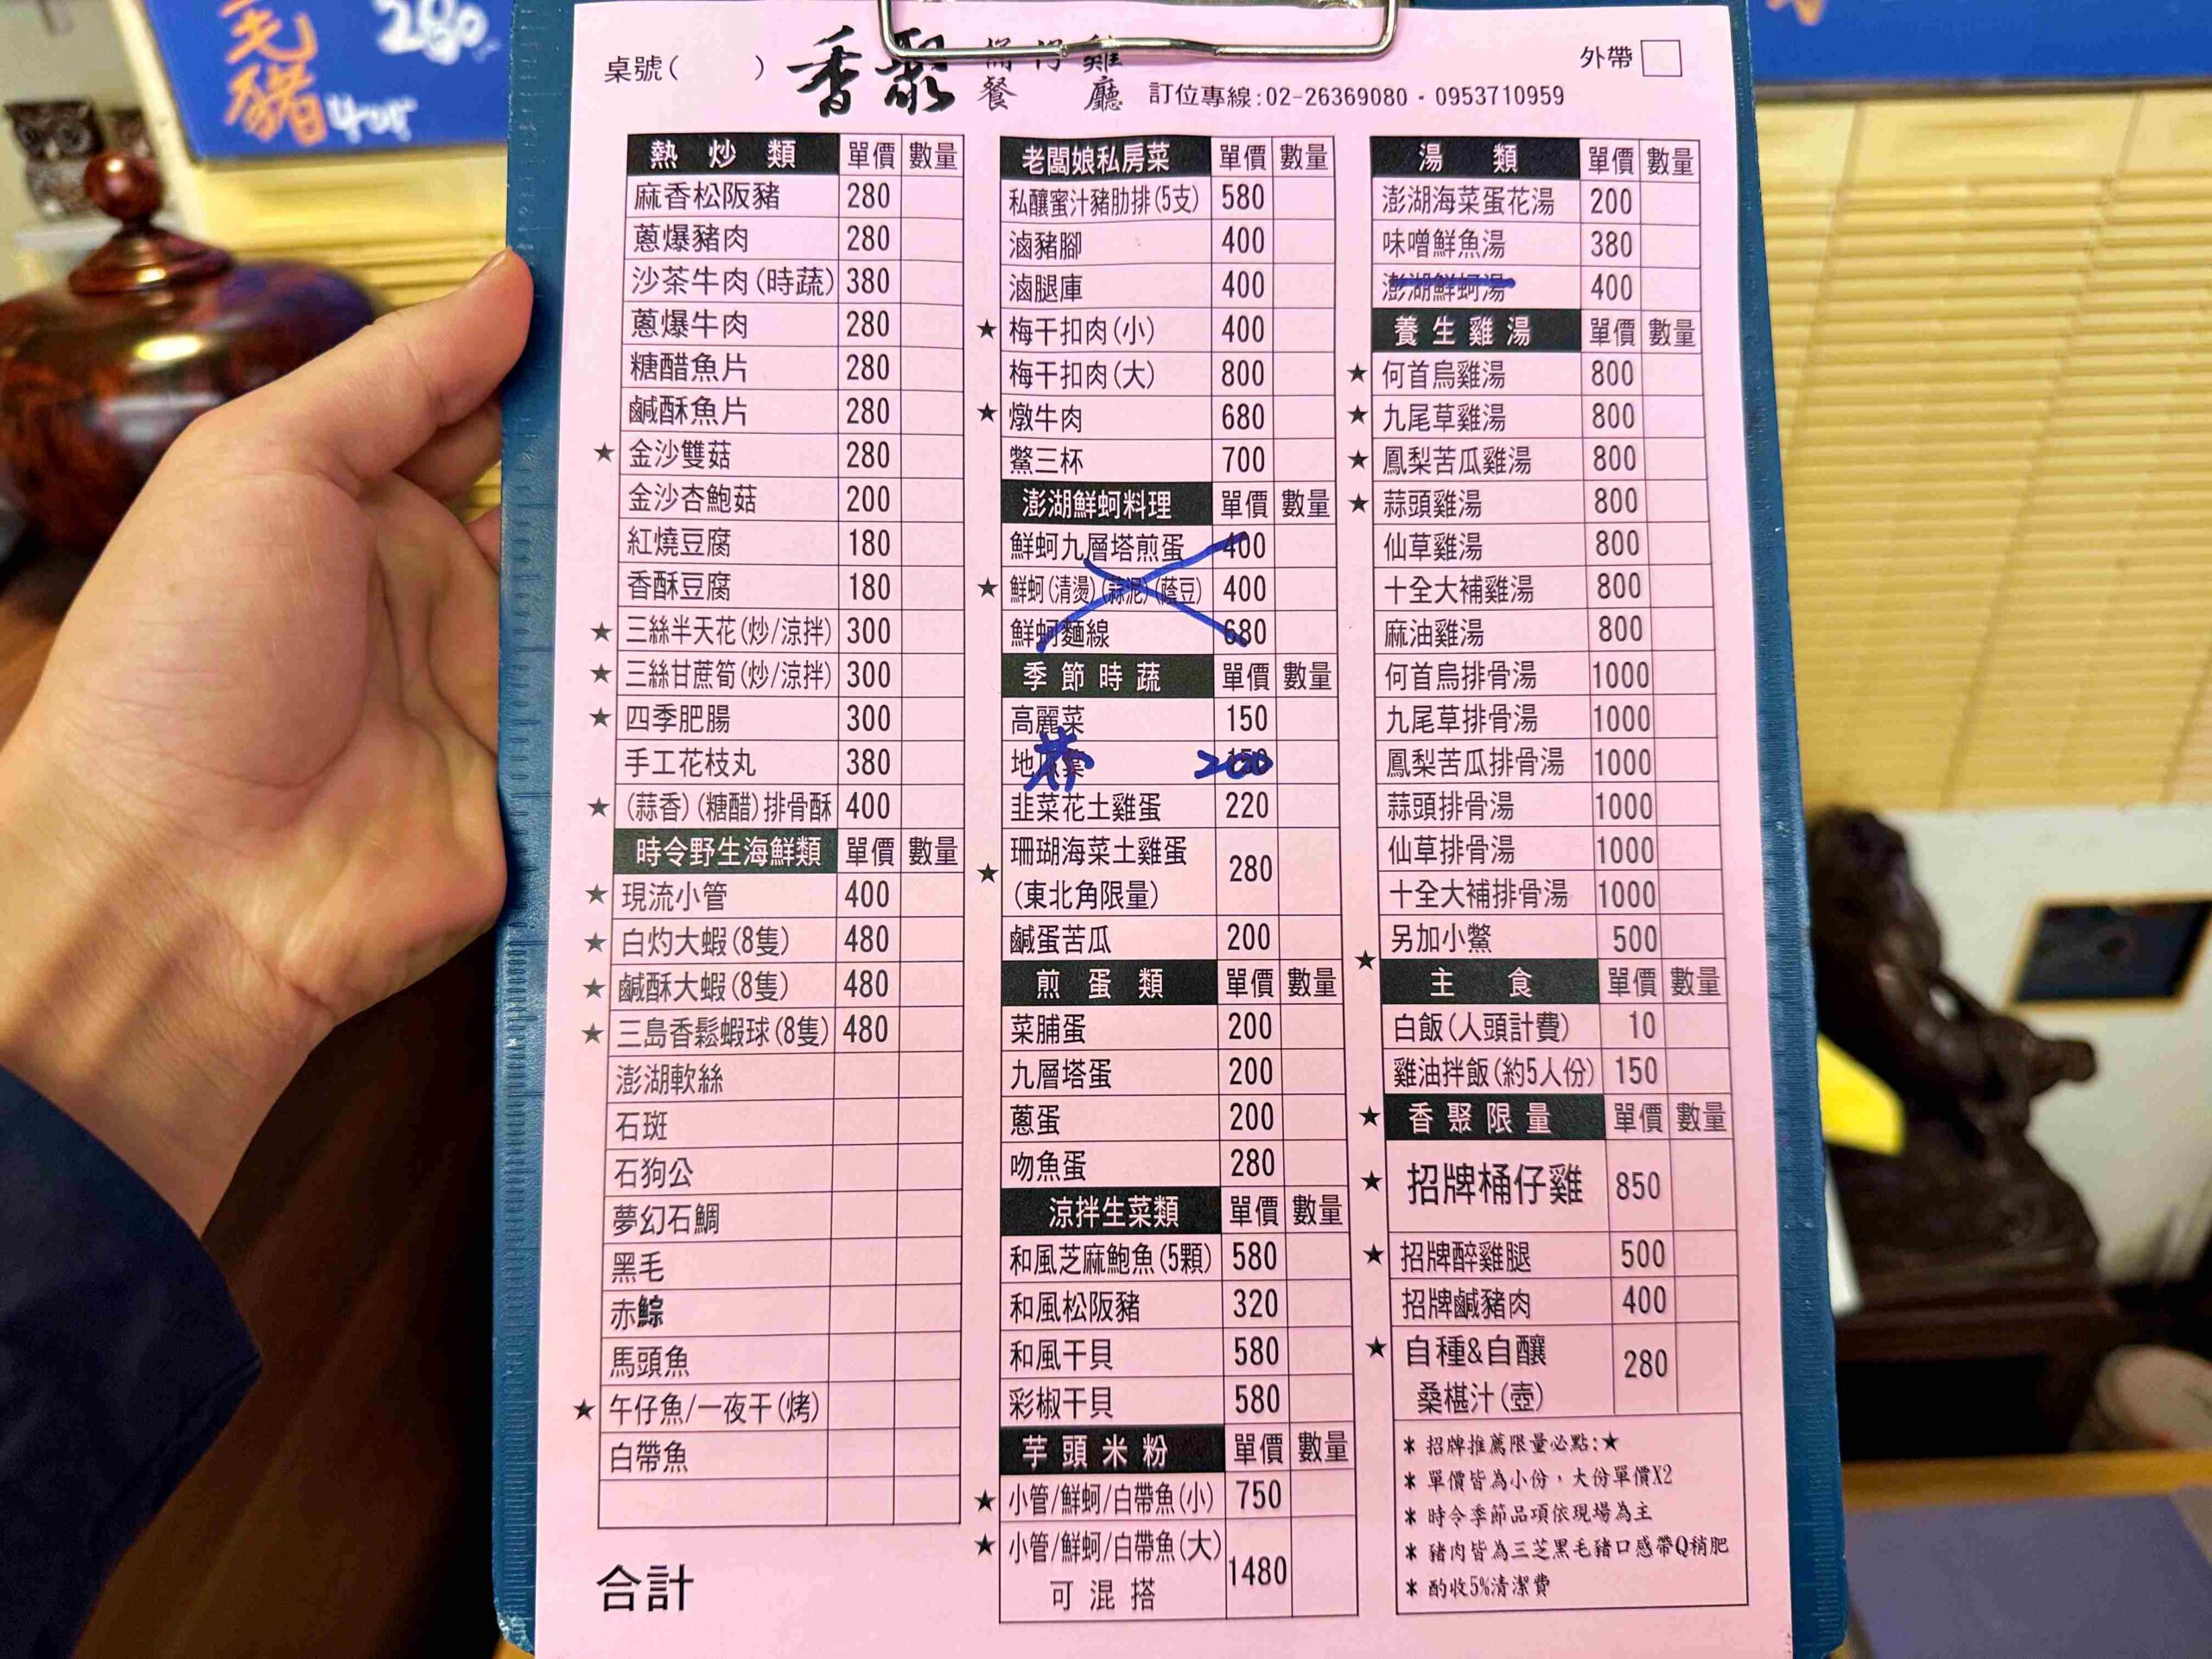 毛豬
280
4吋
桌號( )
香聚
桶仔雞
餐廳
訂位專線:02-26369080・0953710959
外帶
熱炒類 單價 數量
麻香松阪豬 280
蔥爆豬肉 280
沙茶牛肉(時蔬) 380
蔥爆牛肉 280
糖醋魚片 280
鹹酥魚片 280
★ 金沙雙菇 280
金沙杏鮑菇 200
紅燒豆腐 180
香酥豆腐 180
★ 三絲半天花(炒/涼拌) 300
★ 三絲甘蔗筍(炒/涼拌) 300
★ 四季肥腸 300
手工花枝丸 380
★ (蒜香)(糖醋)排骨酥 400
時令野生海鮮類 單價 數量
★ 現流小管 400
★ 白灼大蝦(8隻) 480
★ 鹹酥大蝦(8隻) 480
★ 三島香鬆蝦球(8隻) 480
澎湖軟絲
石斑
石狗公
夢幻石鯛
黑毛
赤鯮
馬頭魚
★ 午仔魚/一夜干(烤)
白帶魚
合計
老闆娘私房菜 單價 數量
私釀蜜汁豬肋排(5支) 580
滷豬腳 400
滷腿庫 400
★ 梅干扣肉(小) 400
梅干扣肉(大) 800
★ 燉牛肉 680
鱉三杯 700
澎湖鮮蚵料理 單價 數量
鮮蚵九層塔煎蛋 400
★ 鮮蚵(清燙)(蒜泥)(蔭豆) 400
鮮蚵麵線 680
季節時蔬 單價 數量
高麗菜 150
地瓜葉 150 200
韭菜花土雞蛋 220
★ 珊瑚海菜土雞蛋 280
(東北角限量)
鹹蛋苦瓜 200
煎蛋類 單價 數量
菜脯蛋 200
九層塔蛋 200
蔥蛋 200
吻魚蛋 280
涼拌生菜類 單價 數量
和風芝麻鮑魚(5顆) 580
和風松阪豬 320
和風干貝 580
彩椒干貝 580
芋頭米粉 單價 數量
★ 小管/鮮蚵/白帶魚(小) 750
★ 小管/鮮蚵/白帶魚(大) 1480
可混搭
湯類 單價 數量
澎湖海菜蛋花湯 200
味噌鮮魚湯 380
澎湖鮮蚵湯 400
養生雞湯 單價 數量
★ 何首烏雞湯 800
★ 九尾草雞湯 800
★ 鳳梨苦瓜雞湯 800
★ 蒜頭雞湯 800
仙草雞湯 800
十全大補雞湯 800
麻油雞湯 800
何首烏排骨湯 1000
九尾草排骨湯 1000
鳳梨苦瓜排骨湯 1000
蒜頭排骨湯 1000
仙草排骨湯 1000
十全大補排骨湯 1000
另加小鱉 500
★ 主食 單價 數量
白飯(人頭計費) 10
雞油拌飯(約5人份) 150
★ 香聚限量 單價 數量
★ 招牌桶仔雞 850
★ 招牌醉雞腿 500
招牌鹹豬肉 400
★ 自種&自釀 280
桑椹汁(壺)
＊招牌推薦限量必點:★
＊單價皆為小份，大份單價X2
＊時令季節品項依現場為主
＊豬肉皆為三芝黑毛豬口感帶Q稍肥
＊酌收5%清潔費